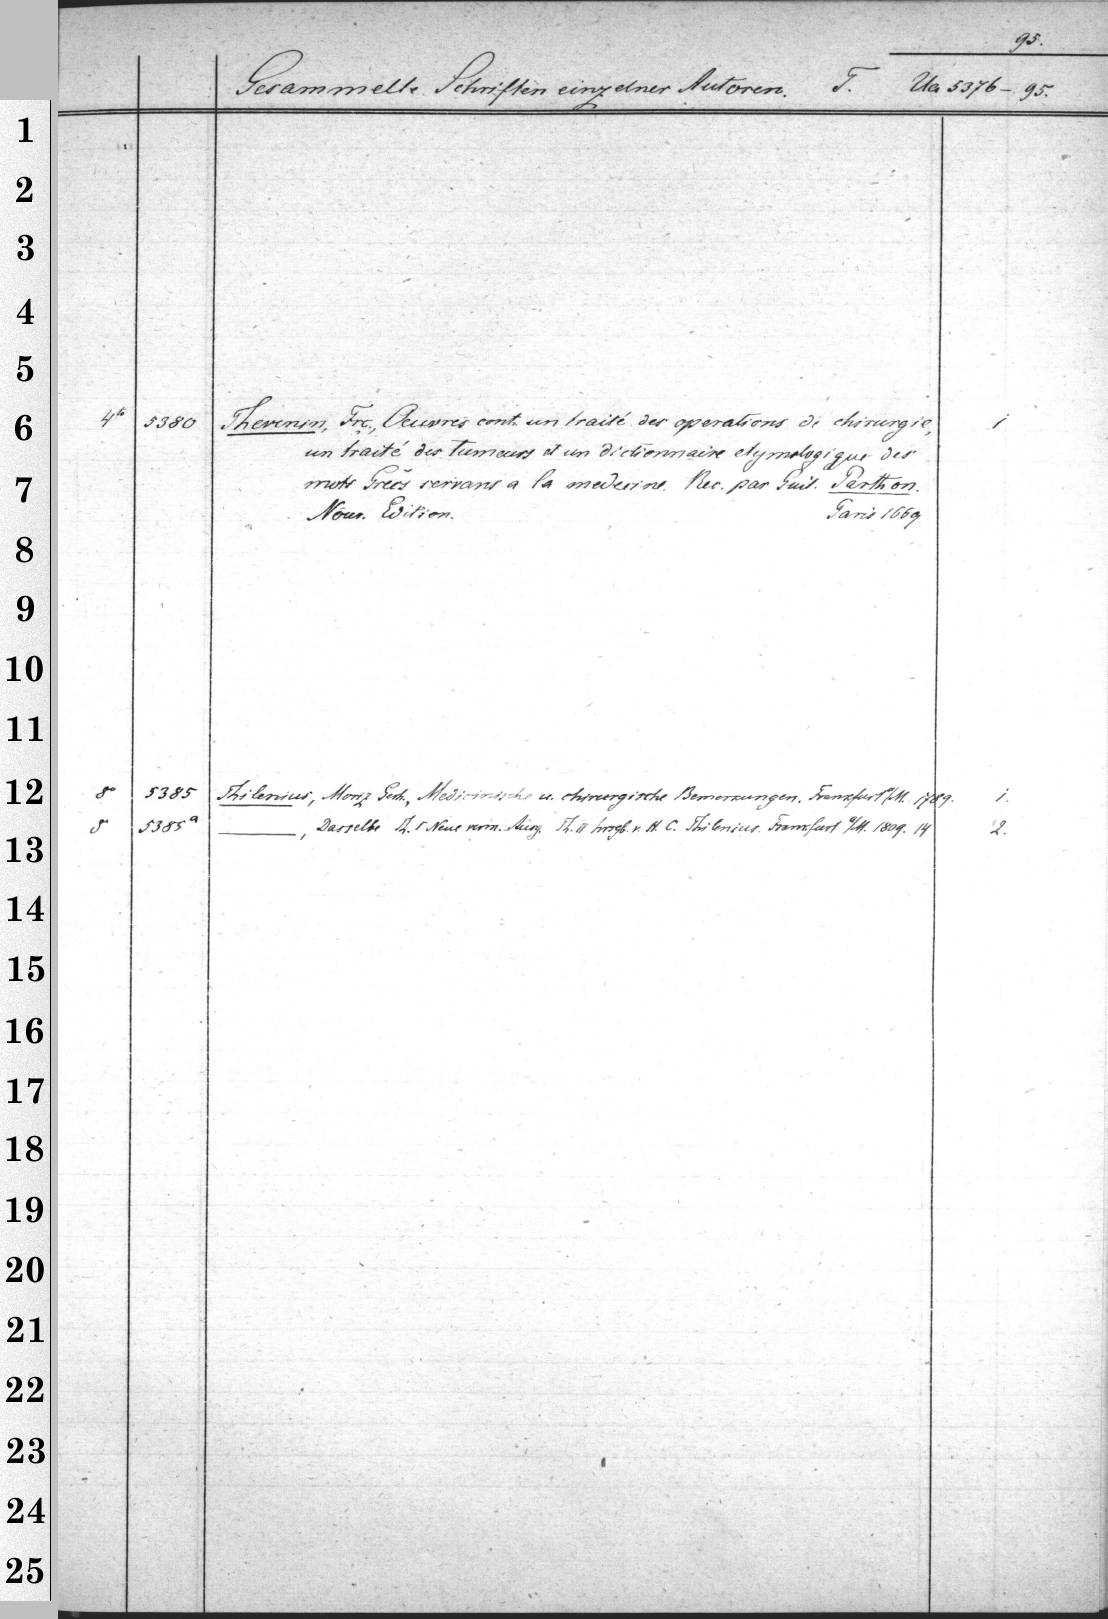 95.
Gesammelte Schriften einzelner Autoren. T. Ua 5376-95.
1
2
3
4
5
6
4to 5380 Thevenin, Frç., Oeuvres cont. un traité des operations di chirurgie, 1
un traité des tumeurs et un dictionnaire etymologique des
7
mots Grecs servans a la medecine. Rec. par Guil. Parthon.
Nouv. Edition. Paris 1669
8
9
10
11
12
8o 5385 Thilenius, Moriz Gerh., Medicinische u. chirurgische Bemerkungen. Frankfurt a/M. 1789. 1.
8 5385a ———, Dasselbe Th. I Neue verm. Ausg. Th. II hrsgb. v. H. C. Thilenius. Frankfurt a/M. 1809. 14 2.
13
14
15
16
17
18
19
20
21
22
23
24
25